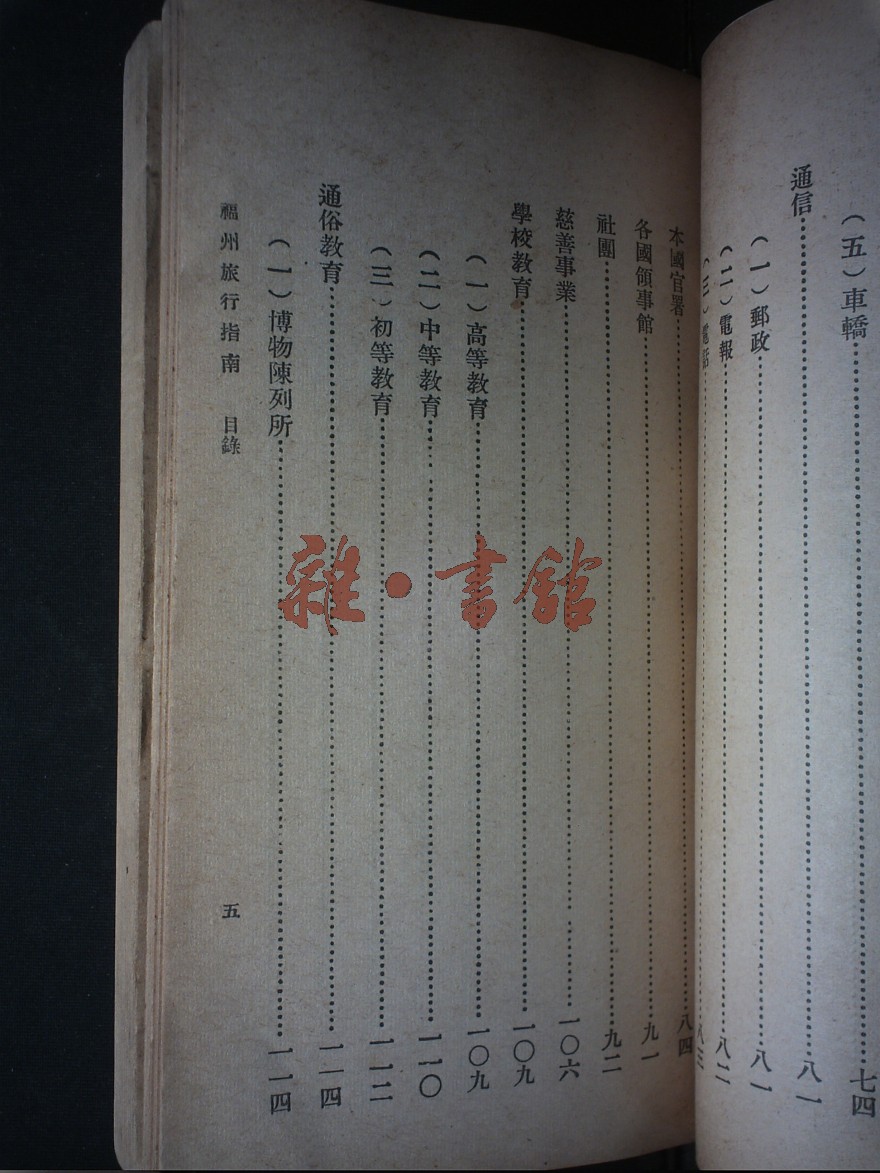 （五）車轎……七四
通信……八一
（一）郵政……八一
（二）電報……八二
（三）電話……八三
本國官署……八四
各國領事館……九一
社團……九二
慈善事業……一〇六
學校教育……一〇九
（一）高等教育……一〇九
（二）中等教育……一一〇
（三）初等教育……一一二
通俗教育……一一四
（一）博物陳列所……一一四
福州旅行指南 目錄 五
雜·書館